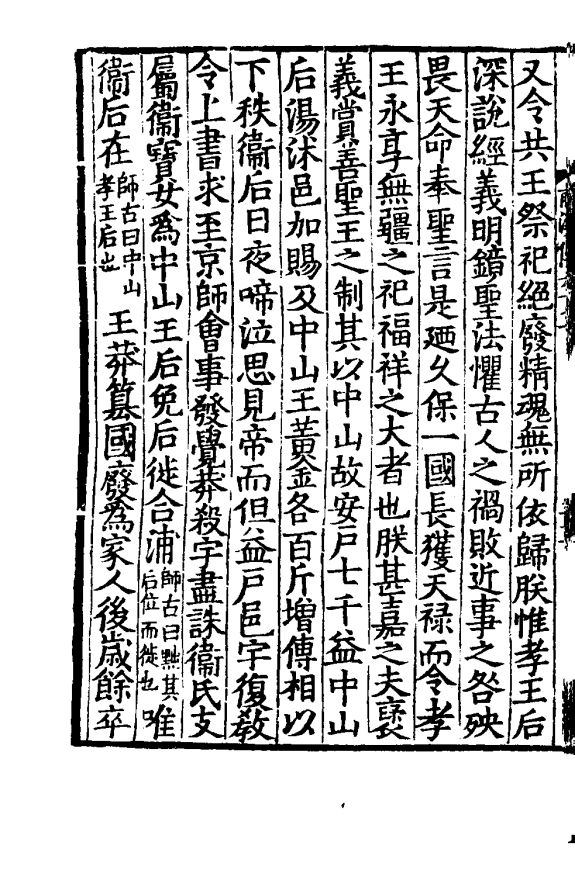 又令共王祭祀絶廢精魂無所依歸朕惟孝王后
深說經義明鏡聖法懼古人之禍敗近事之咎殃
畏天命奉聖言是廼久保一國長獲天禄而令孝
王永享無疆之祀福祥之大者也朕甚嘉之夫襃
義賞善聖王之制其以中山故安戶七千益中山
后湯沐邑加賜及中山王黃金各百斤增傅相以
下秩衞后日夜啼泣思見帝而但益戶邑宇復教
令上書求至京師會事發覺莽殺宇盡誅衞氏支
屬衞寶女爲中山王后免后徙合浦師古曰黜其后位而徙也唯
衞后在師古曰中山孝王后也王莽篡國廢爲家人後歲餘卒